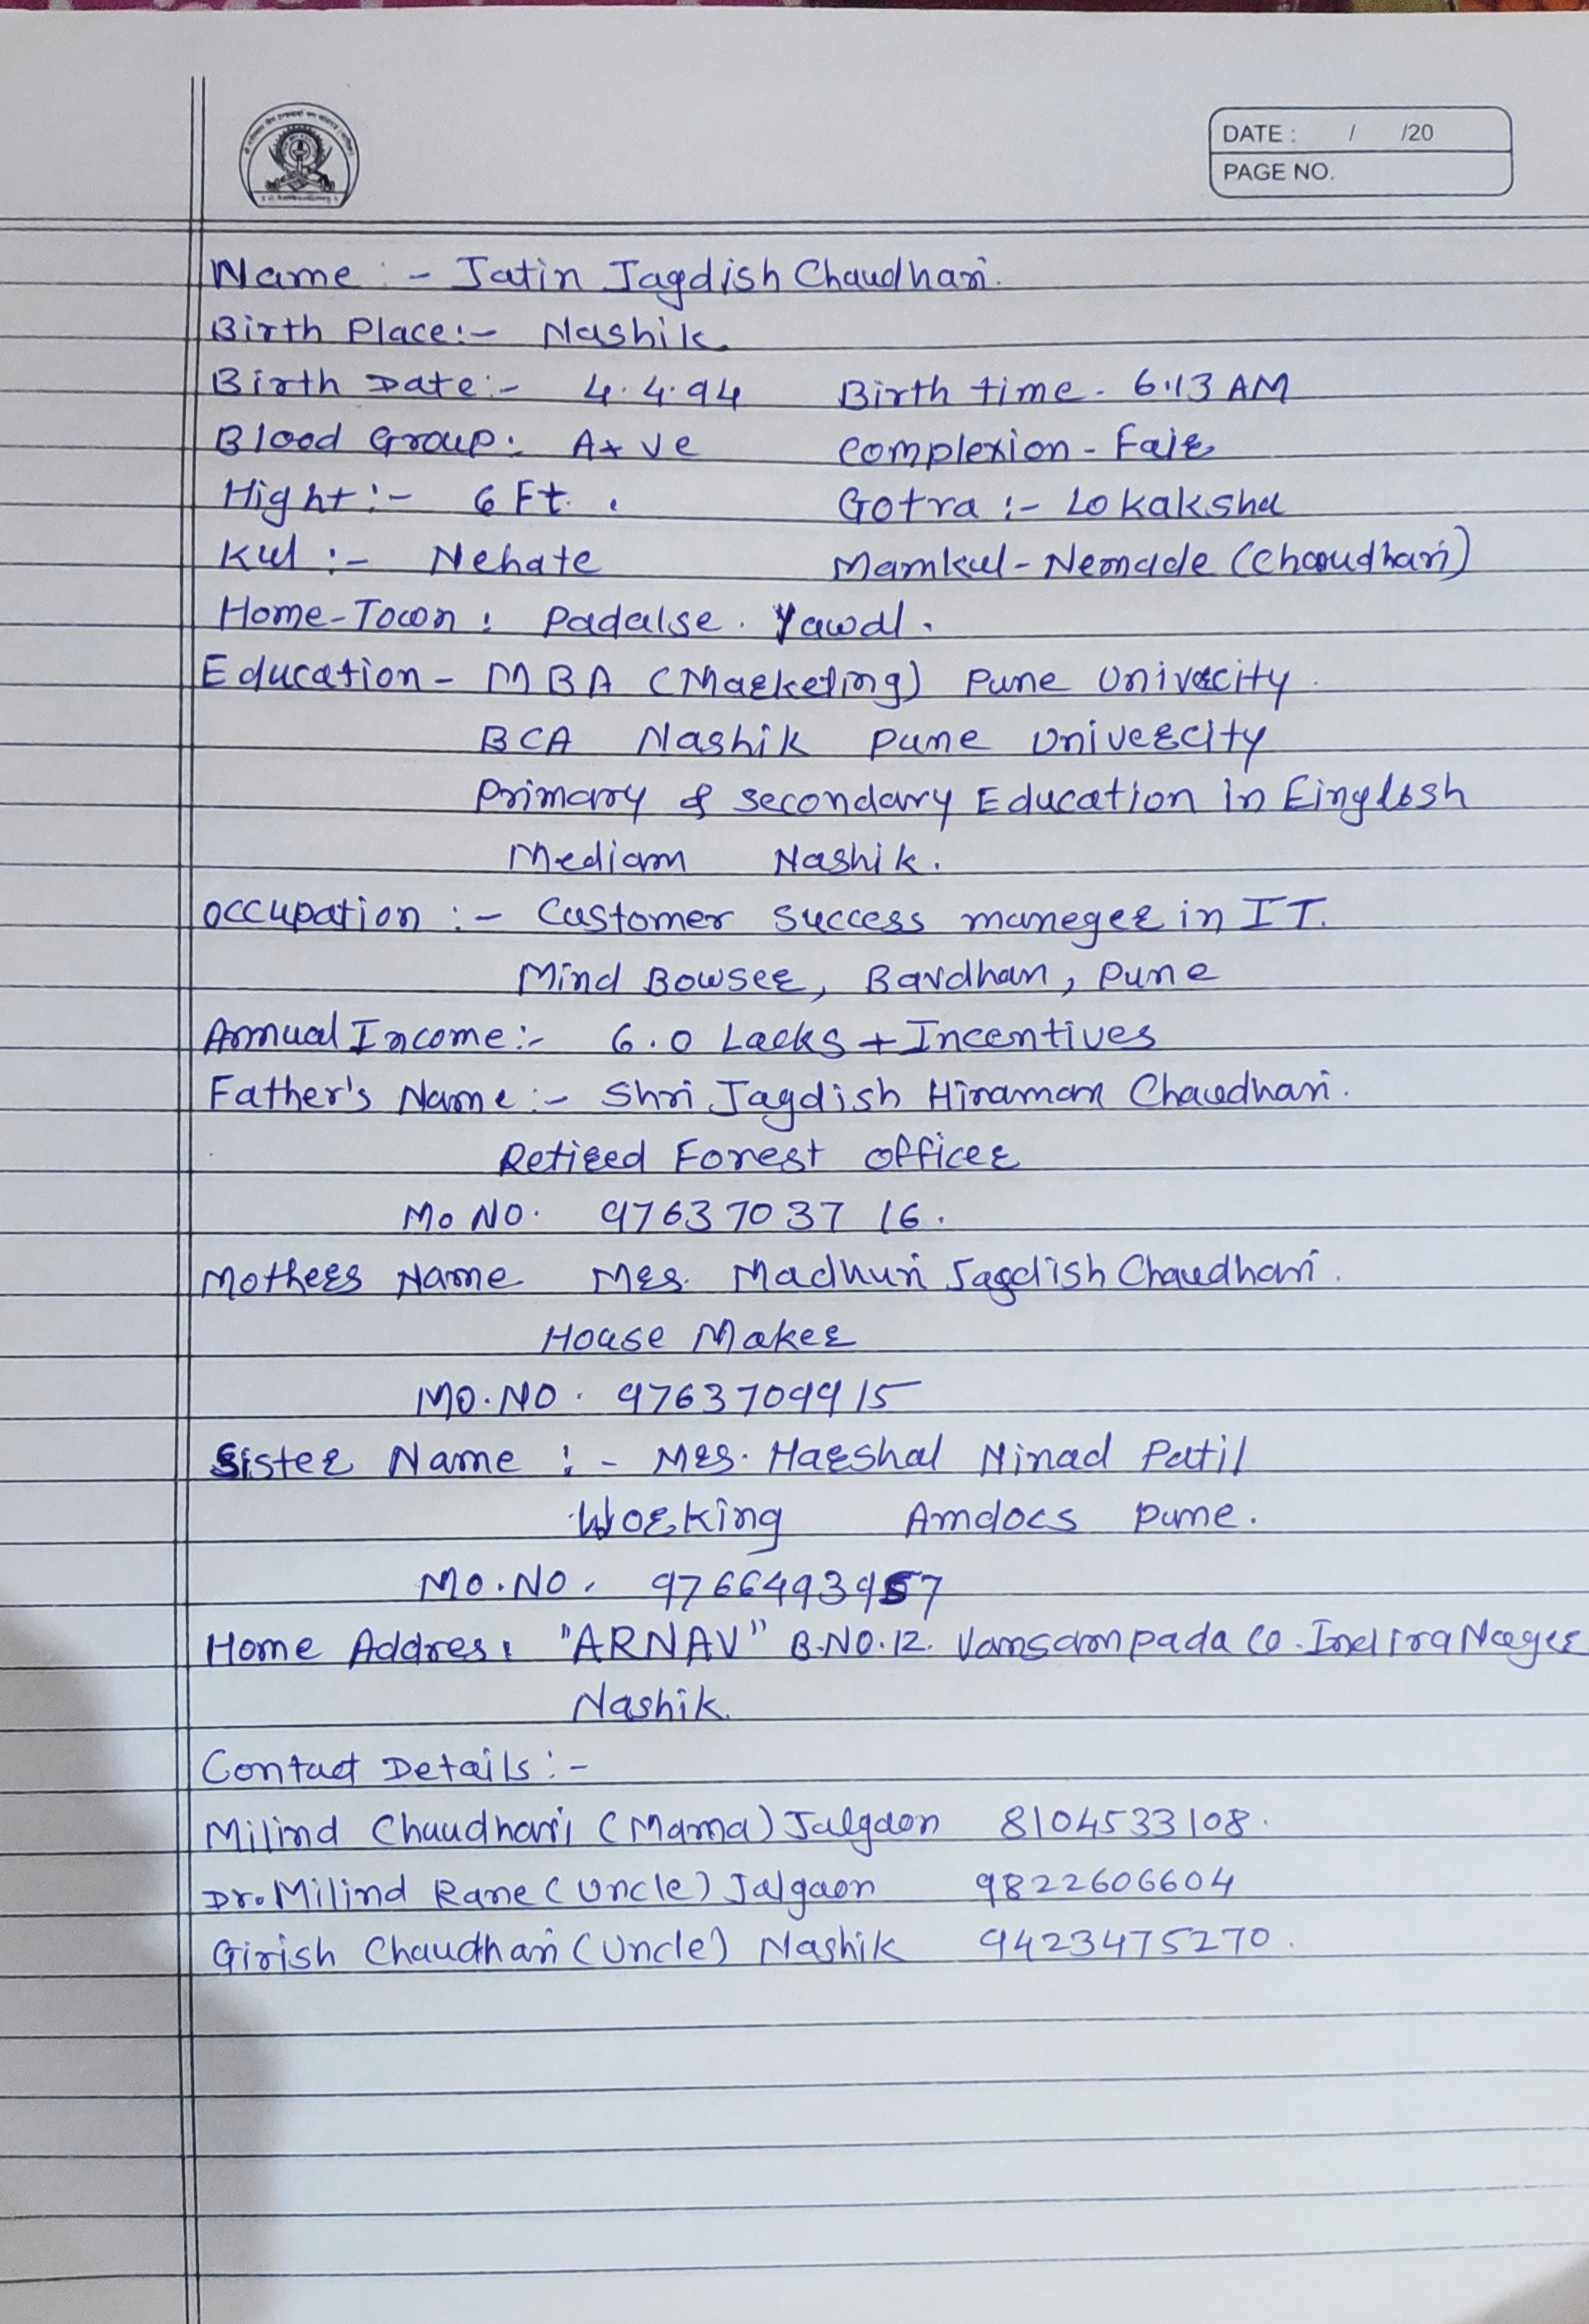 DATE : / /20
PAGE NO.
Name :- Jatin Jagdish Chaudhari.
Birth Place:- Nashik.
Birth Date:- 4.4.94 Birth time - 6:13 AM
Blood Group: A+ve Complexion - Fair
Hight :- 6 Ft. Gotra :- Lokaksha
Kul :- Nehate Mamkul - Nemade (Chaoudhari)
Home-Town : Padalse. Yawal.
Education - MBA (Marketing) Pune Univercity.
BCA Nashik Pune Univercity
Primary & Secondary Education in Einglish
Mediam Nashik.
Occupation :- Customer Success maneger in IT.
Mind Bowser, Bavdhan, Pune
Annual Income:- 6.0 Lacks + Incentives
Father's Name :- Shri Jagdish Hiraman Chaudhari.
Retired Forest Officer
Mo No. 9763703716.
Mothers Name Mrs. Madhuri Jagdish Chaudhari.
House Maker
MO.NO. 9763709915
Sister Name :- Mrs. Harshal Ninad Patil
Working Amdocs Pune.
Mo.No. 9766493957
Home Addres: "ARNAV" B.NO.12. Co. Indira Nager
Nashik.
Contact Details :-
Milind Chaudhari (Mama) Jalgaon 8104533108.
Dr. Milind Rane (Uncle) Jalgaon 9822606604
Girish Chaudhari (Uncle) Nashik 9423475270.